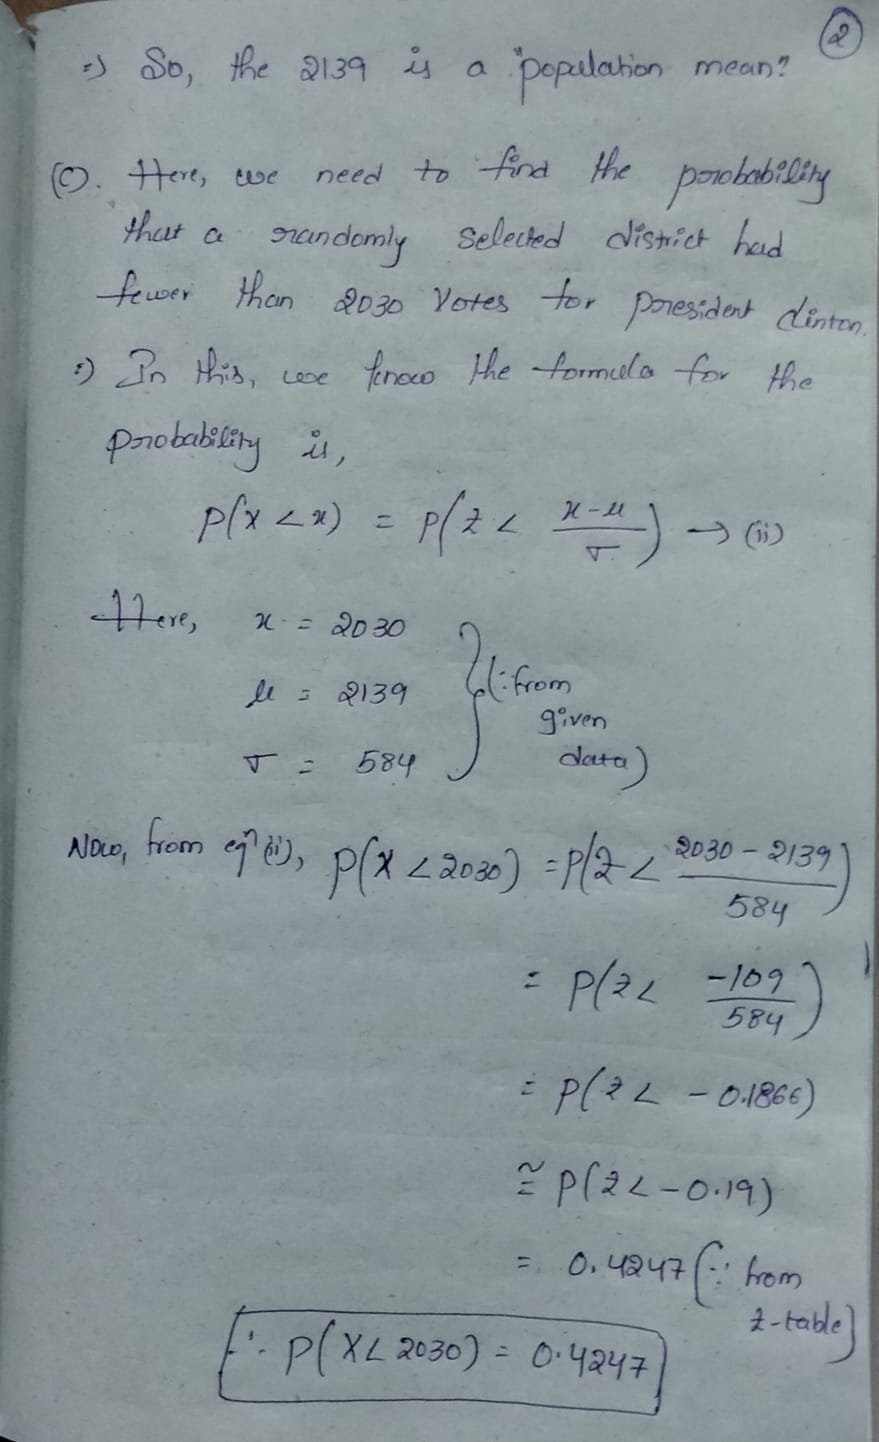 ②
=) So, the 2139 is a population mean?
(C). Here, we need to find the probability
that a randomly selected district had
fewer than 2030 Votes for president clinton.
=) In this, we know the formula for the
probability is,
P(X < x) = P(Z < (x-μ)/σ) → (ii)
Here, x = 2030
μ = 2139
σ = 584
(∵ from
given
data)
Now, from eqⁿ (ii), P(X < 2030) = P(Z < (2030 - 2139)/584)
= P(Z < -109/584)
= P(Z < -0.1866)
≅ P(Z < -0.19)
= 0.4247 (∵ from
z-table)
∴ P(X < 2030) = 0.4247